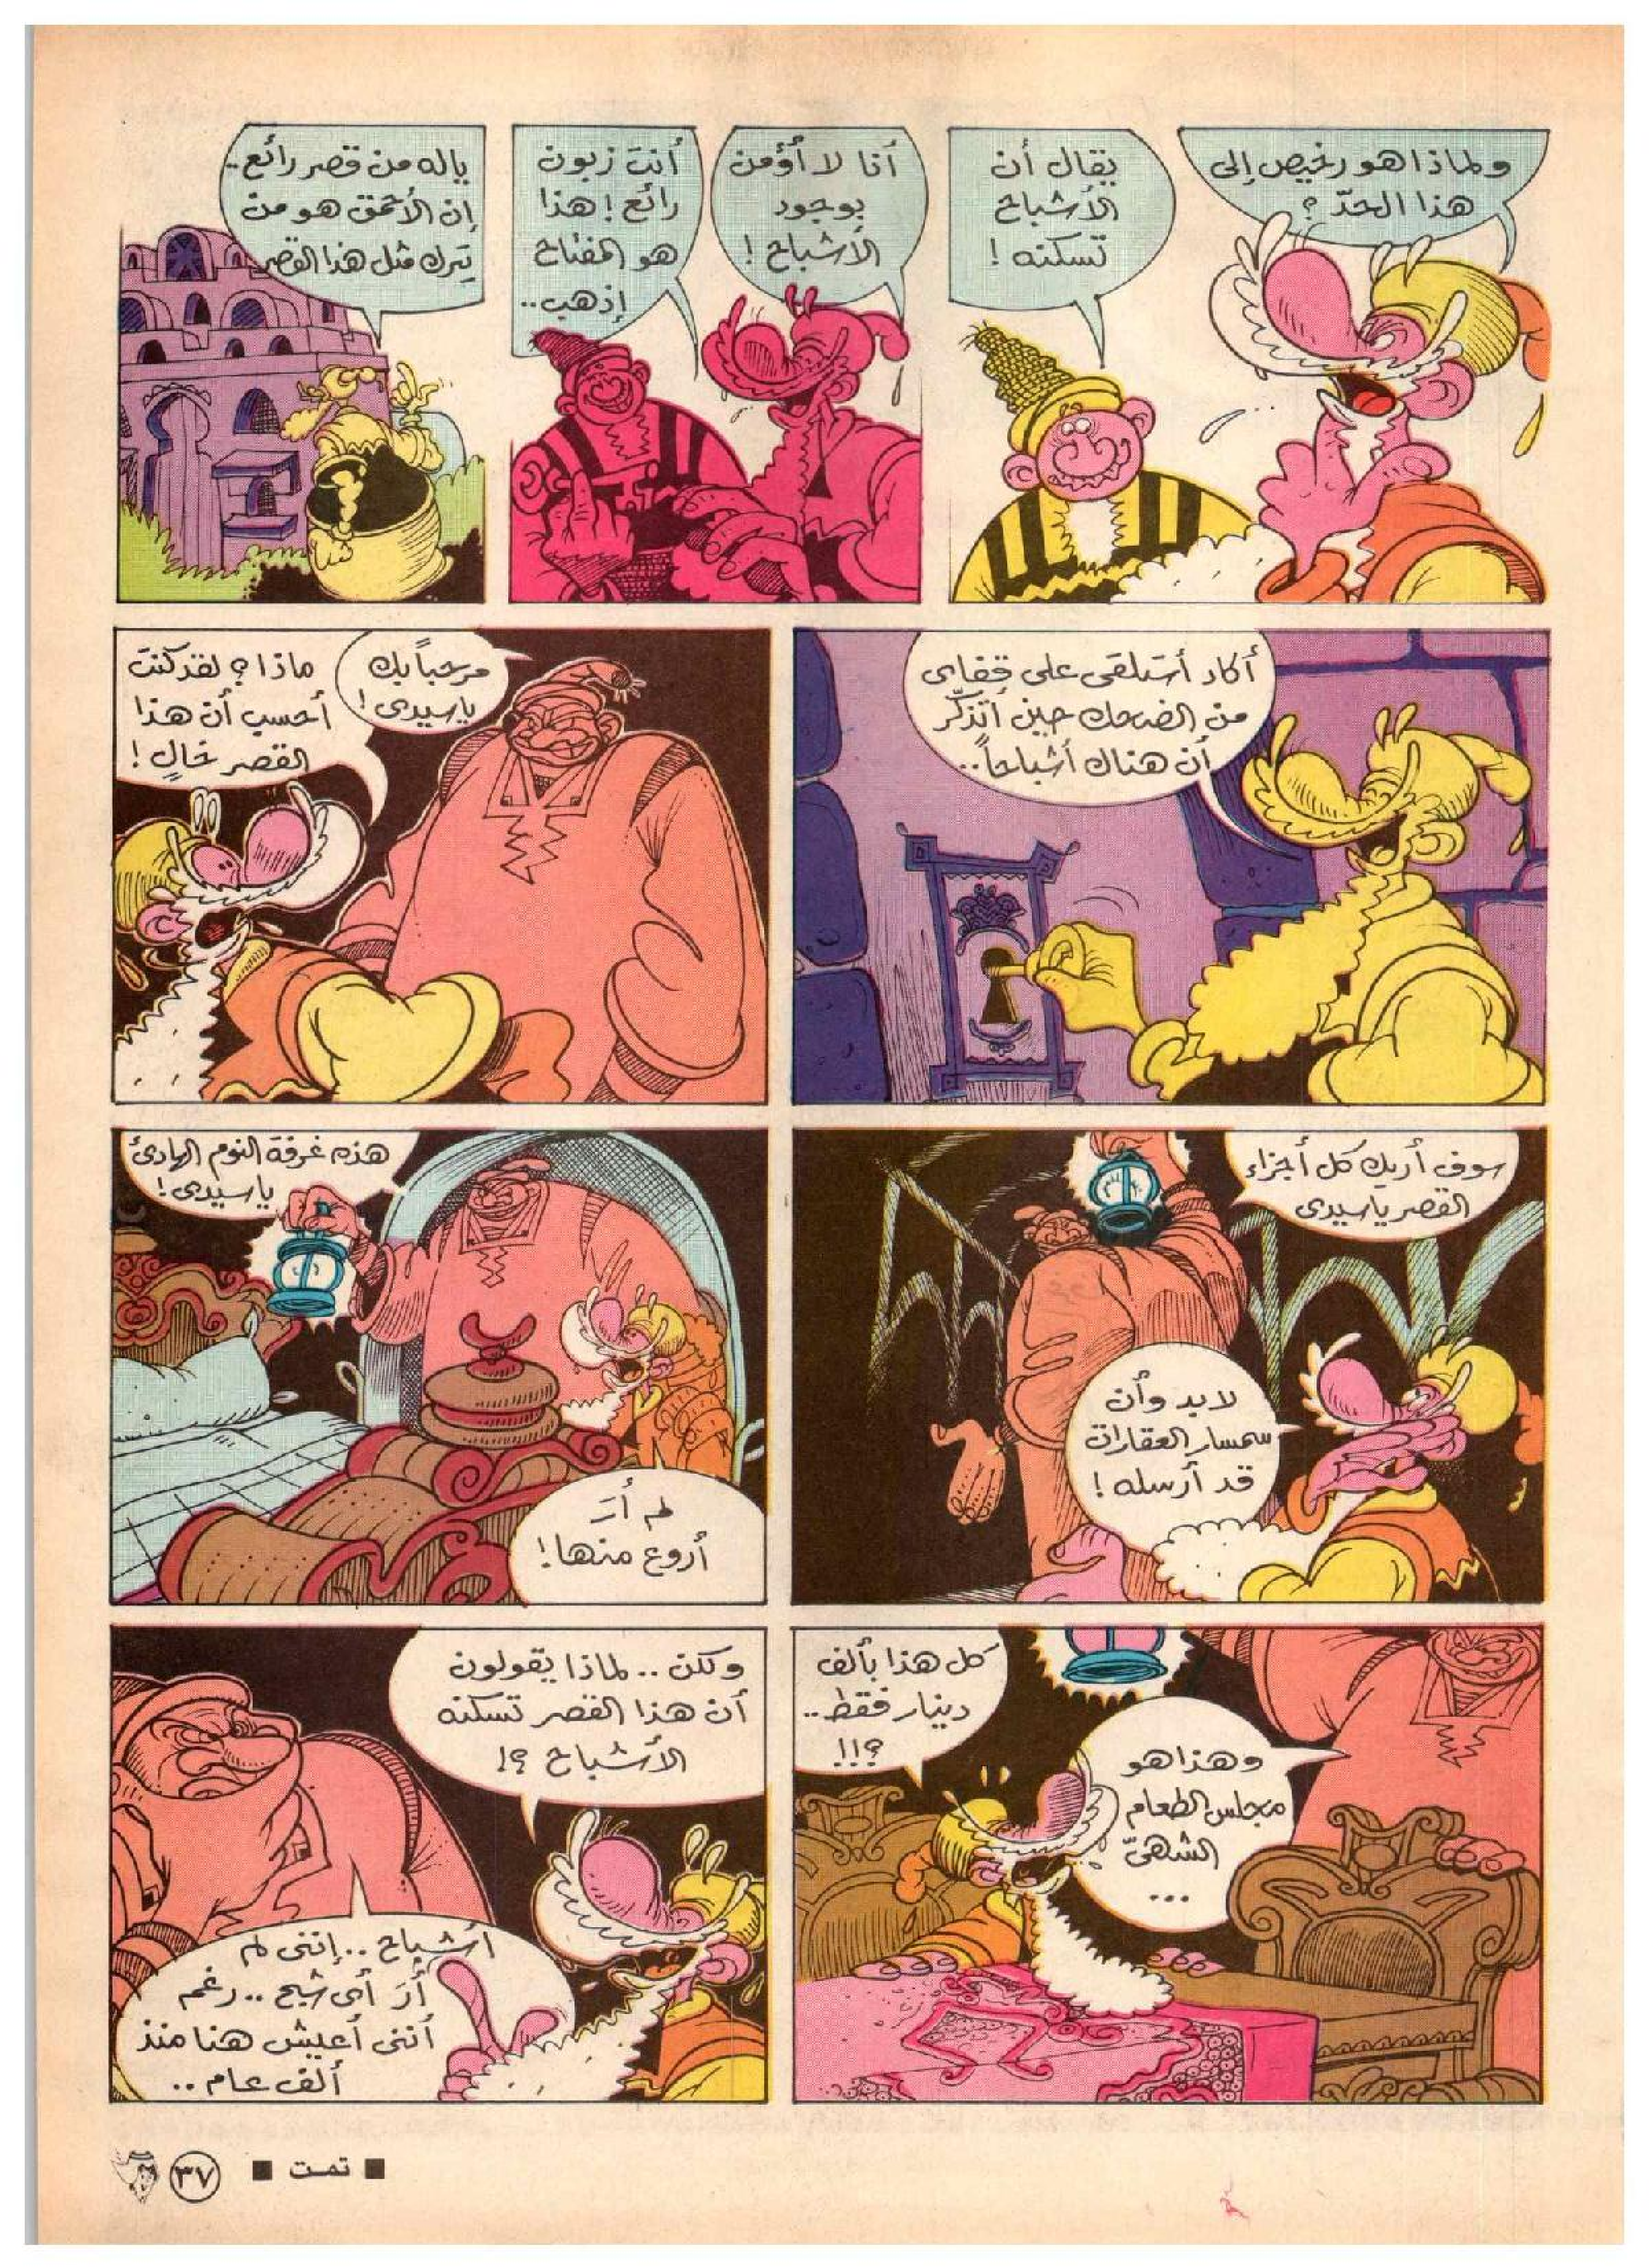 ولماذا هو رخيص إلى
هذا الحدّ ؟
يقال أن
الأشباح
تسكنه !
أنا لا أؤمن
بوجود
الأشباح !
أنت زبون
رائع ! هذا
هو المفتاح
إذهب..
ياله من قصر رائع..
إن الأحمق هو من
يترك مثل هذا القصر
أكاد أستلقى على قفاى
من الضحك حين أتذكّر
أن هناك أشباحاً..
مرحباً بك
ياسيدى !
ماذا ؟ لقد كنت
أحسب أن هذا
القصر خالٍ !
سوف أريك كل أجزاء
القصر ياسيدى
لابد وأن
سمسار العقارات
قد أرسله !
هذه غرفة النوم الهادئ
ياسيدى !
لم أرَ
أروع منها !
وهذا هو
مجلس الطعام
الشهىّ
...
كل هذا بألف
دينار فقط..
؟!!!
ولكن .. لماذا يقولون
أن هذا القصر تسكنه
الأشباح ؟!
أشباح .. إننى لم
أرَ أى شبح .. رغم
أننى أعيش هنا منذ
ألف عام ..
■ تمت ■
٣٧